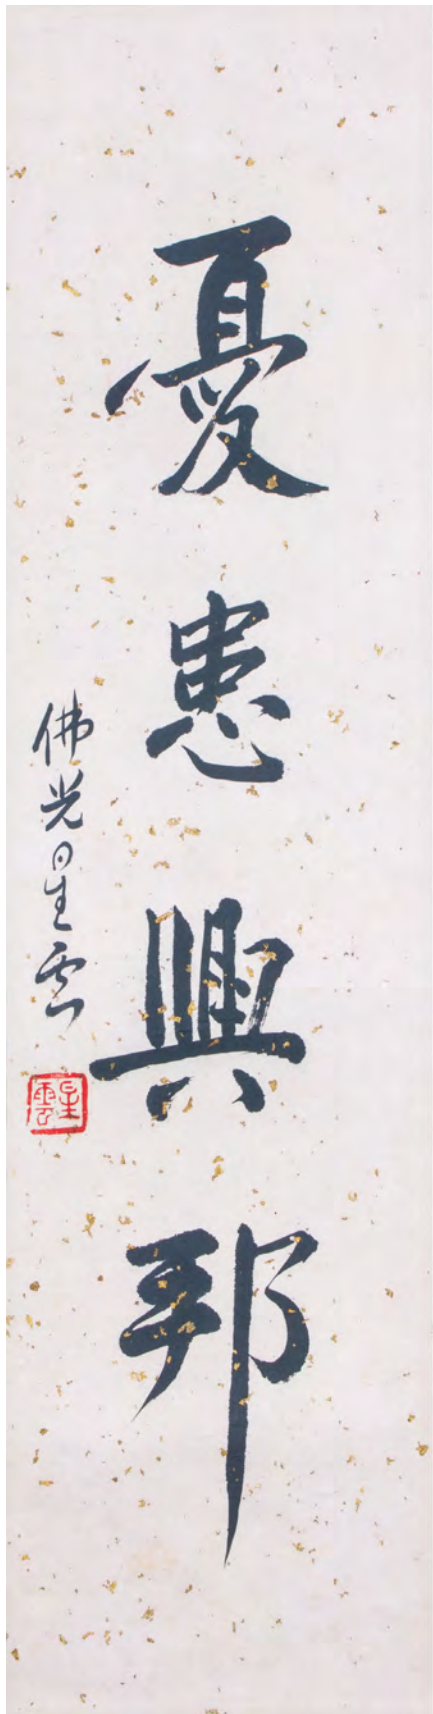 憂患興邦
佛光星雲
星雲